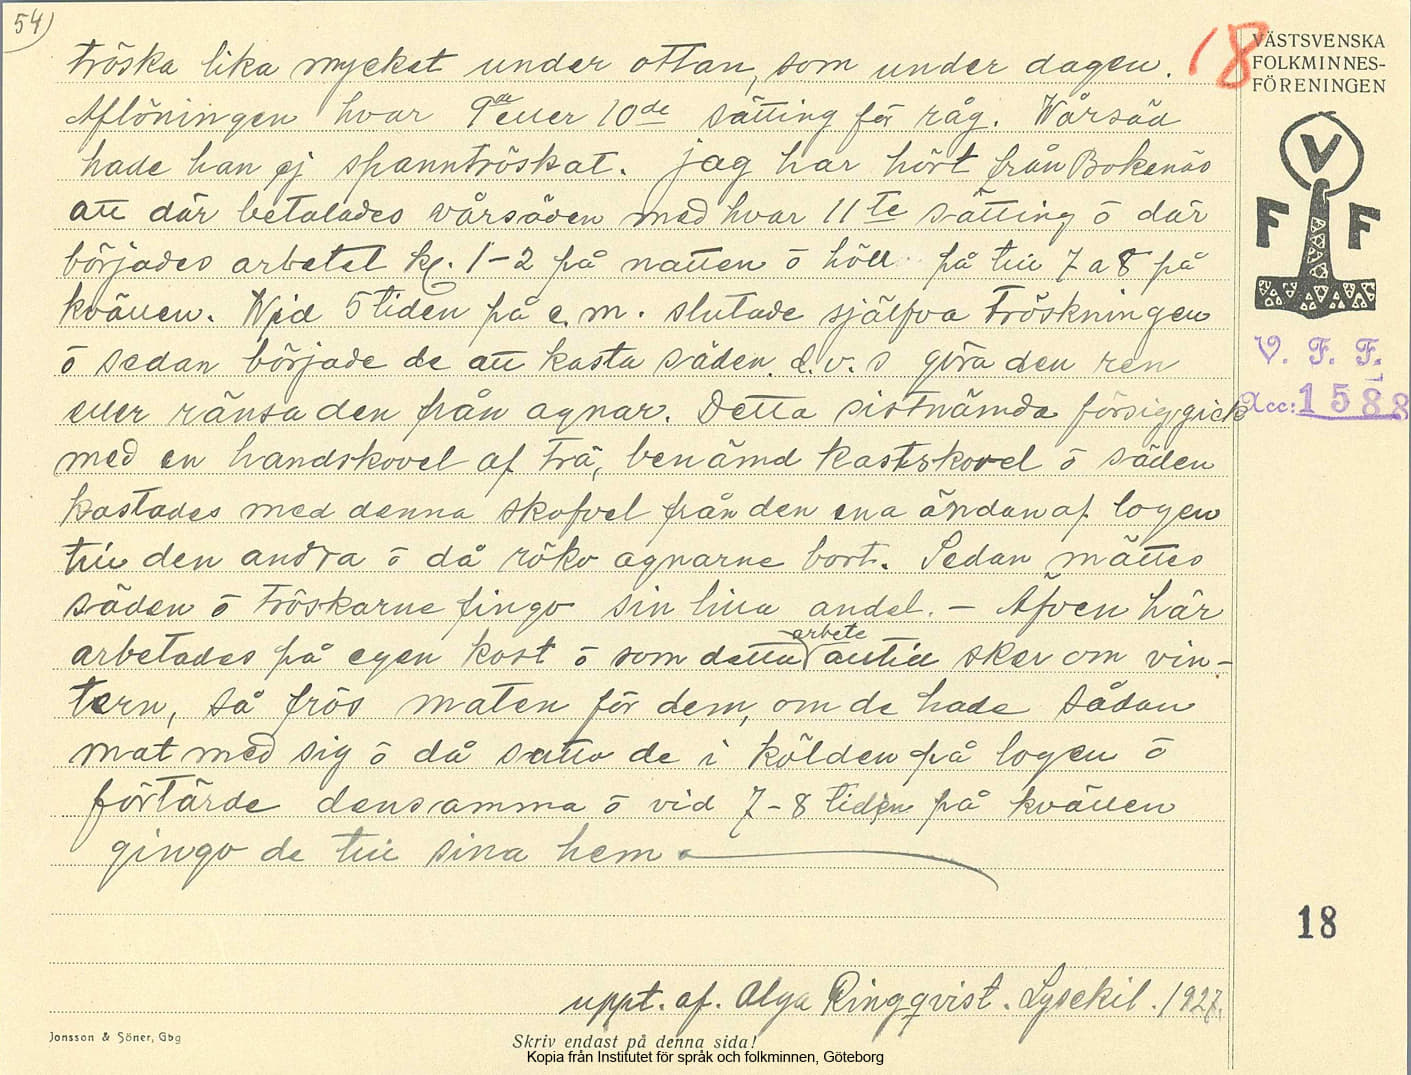 54)
tröska lika mycket under ottan, som under dagen.
Aflöningen hvar 9de eller 10de sätting för råg. Wårsäd
hade han ej spanntröskat. jag har hört från Bokenäs
att där betalades vårsäden med hvar 11te sätting ō där
börjades arbetet kl. 1-2 på natten ō höll på till 7 a 8 på
kvällen. Wid 5 tiden på e.m. slutade själfva tröskningen
ō sedan började de att kasta säden. d.v.s göra den ren
eller ränsa den från agnar. Detta sistnämda försiggick
med en handskovel af trä, benämd kastskovel ō säden
kastades med denna skofvel från den ena ändan af logen
till den andra ō då röko agnarne bort. Sedan mättes
säden ō tröskarne fingo sin lilla andel. - Äfven här
arbetades på egen kost ō som detta arbete alltid sker om vin-
tern, så frös maten för dem, om de hade sådan
mat med sig ō då satto de i kölden på logen ō
förtärde densamma ō vid 7-8 tiden på kvällen
gingo de till sina hem.
uppt. af. Olga Ringqvist. Lysekil. 1927.
18
VÄSTSVENSKA
FOLKMINNES-
FÖRENINGEN
V
F F
V. F. F.
Acc: 1588
18
Jonsson & Söner, Gbg
Skriv endast på denna sida!
Kopia från Institutet för språk och folkminnen, Göteborg